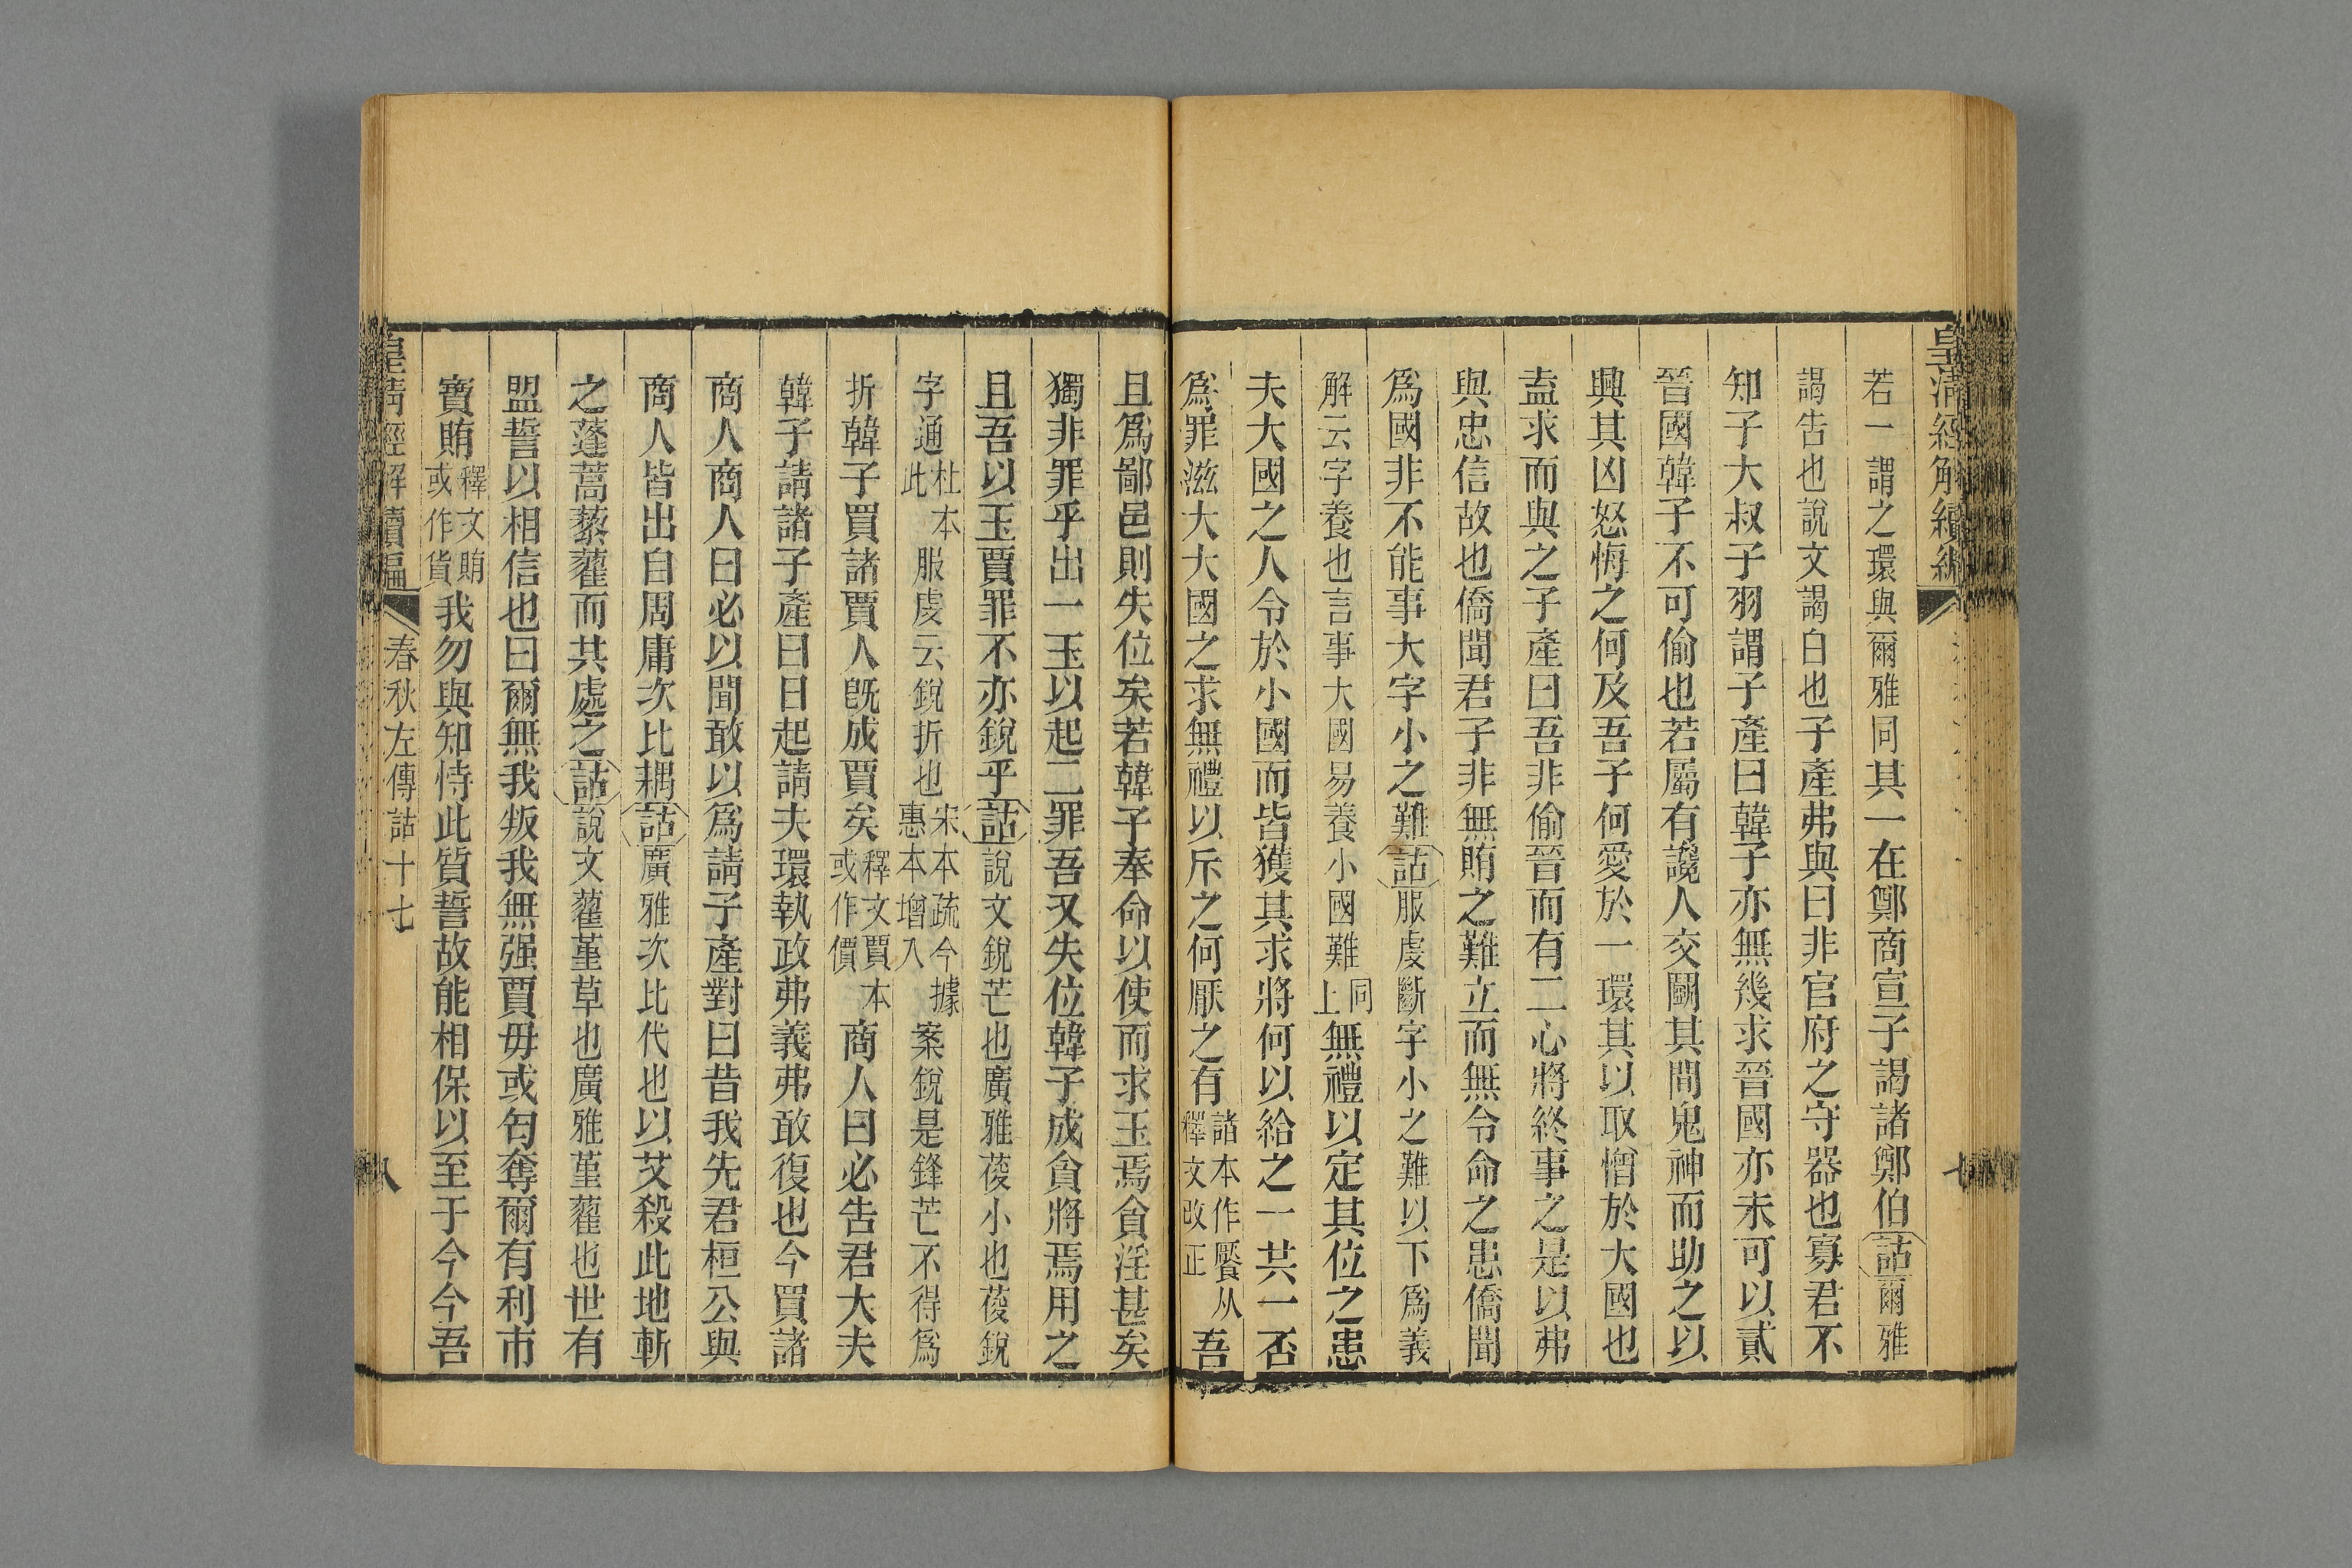 皇清經解續編
七
若一謂之環與爾雅同其一在鄭商宣子謁諸鄭伯詁爾雅
謁告也說文謁白也子產弗與曰非官府之守器也寡君不
知子大叔子羽謂子產曰韓子亦無幾求晉國亦未可以貳
晉國韓子不可偷也若屬有讒人交鬭其間鬼神而助之以
興其凶怒悔之何及吾子何愛於一環其以取憎於大國也
盍求而與之子產曰吾非偷晉而有二心將終事之是以弗
與忠信故也僑聞君子非無賄之難立而無令命之患僑聞
為國非不能事大字小之難詁服虔斷字小之難以下為義
解云字養也言事大國易養小國難同上無禮以定其位之患
夫大國之人令於小國而皆獲其求將何以給之一共一否
為罪滋大大國之求無禮以斥之何厭之有諸本作饜从釋文改正吾
且爲鄙邑則失位矣若韓子奉命以使而求玉焉貪淫甚矣
獨非罪乎出一玉以起二罪吾又失位韓子成貪將焉用之
且吾以玉賈罪不亦銳乎詁說文銳芒也廣雅䔿小也䔿銳
字通杜本此服虔云銳折也宋本疏今據惠本增入案銳是鋒芒不得爲
折韓子買諸賈人旣成賈矣釋文賈本或作價商人曰必告君大夫
韓子請諸子產曰日起請夫環執政弗義弗敢復也今買諸
商人商人曰必以聞敢以爲請子產對曰昔我先君桓公與
商人皆出自周庸次比耦詁廣雅次比代也以艾殺此地斬
之蓬蒿藜藋而共處之詁說文藋堇草也廣雅堇藋也世有
盟誓以相信也曰爾無我叛我無强賈毋或匄奪爾有利市
寶賄釋文賄或作貨我勿與知恃此質誓故能相保以至于今今吾
皇清經解續編
春秋左傳詁十七
八